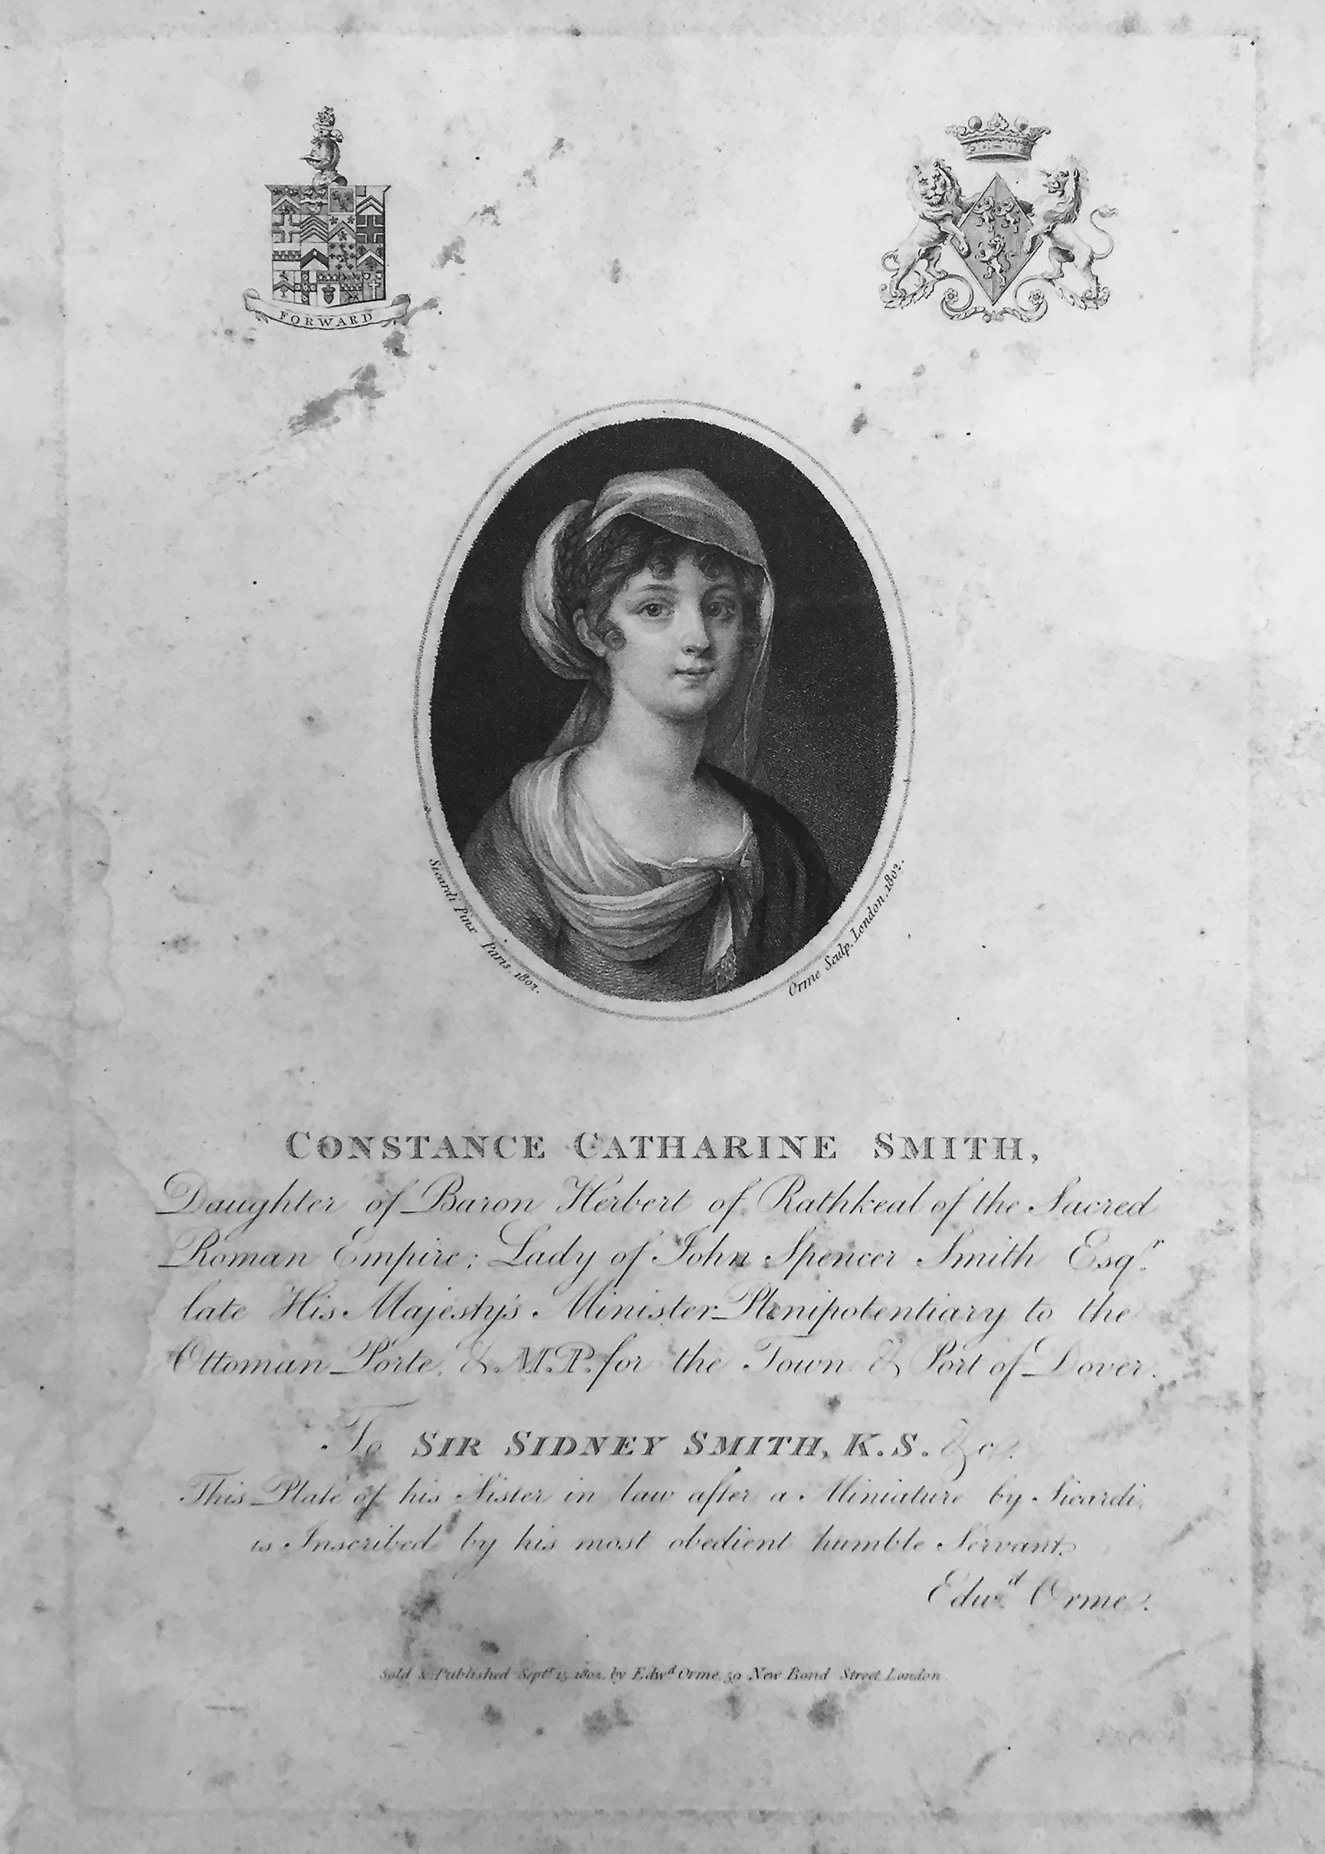 FORWARD
Sicardi Pinx Paris. 1802.
Orme Sculp. London. 1802.
CONSTANCE CATHARINE SMITH,
Daughter of Baron Herbert of Rathkeal of the Sacred
Roman Empire; Lady of John Spencer Smith Esqr.
late His Majesty's Minister Plenipotentiary to the
Ottoman Porte, & M.P. for the Town & Port of Dover.
To SIR SIDNEY SMITH, K.S. &c.
This Plate of his Sister in law after a Miniature by Sicardi,
is Inscribed by his most obedient humble Servant,
Edwd. Orme.
Sold & Published Septr. 15, 1802, by Edwd Orme, 59 New Bond Street London.
PROOF